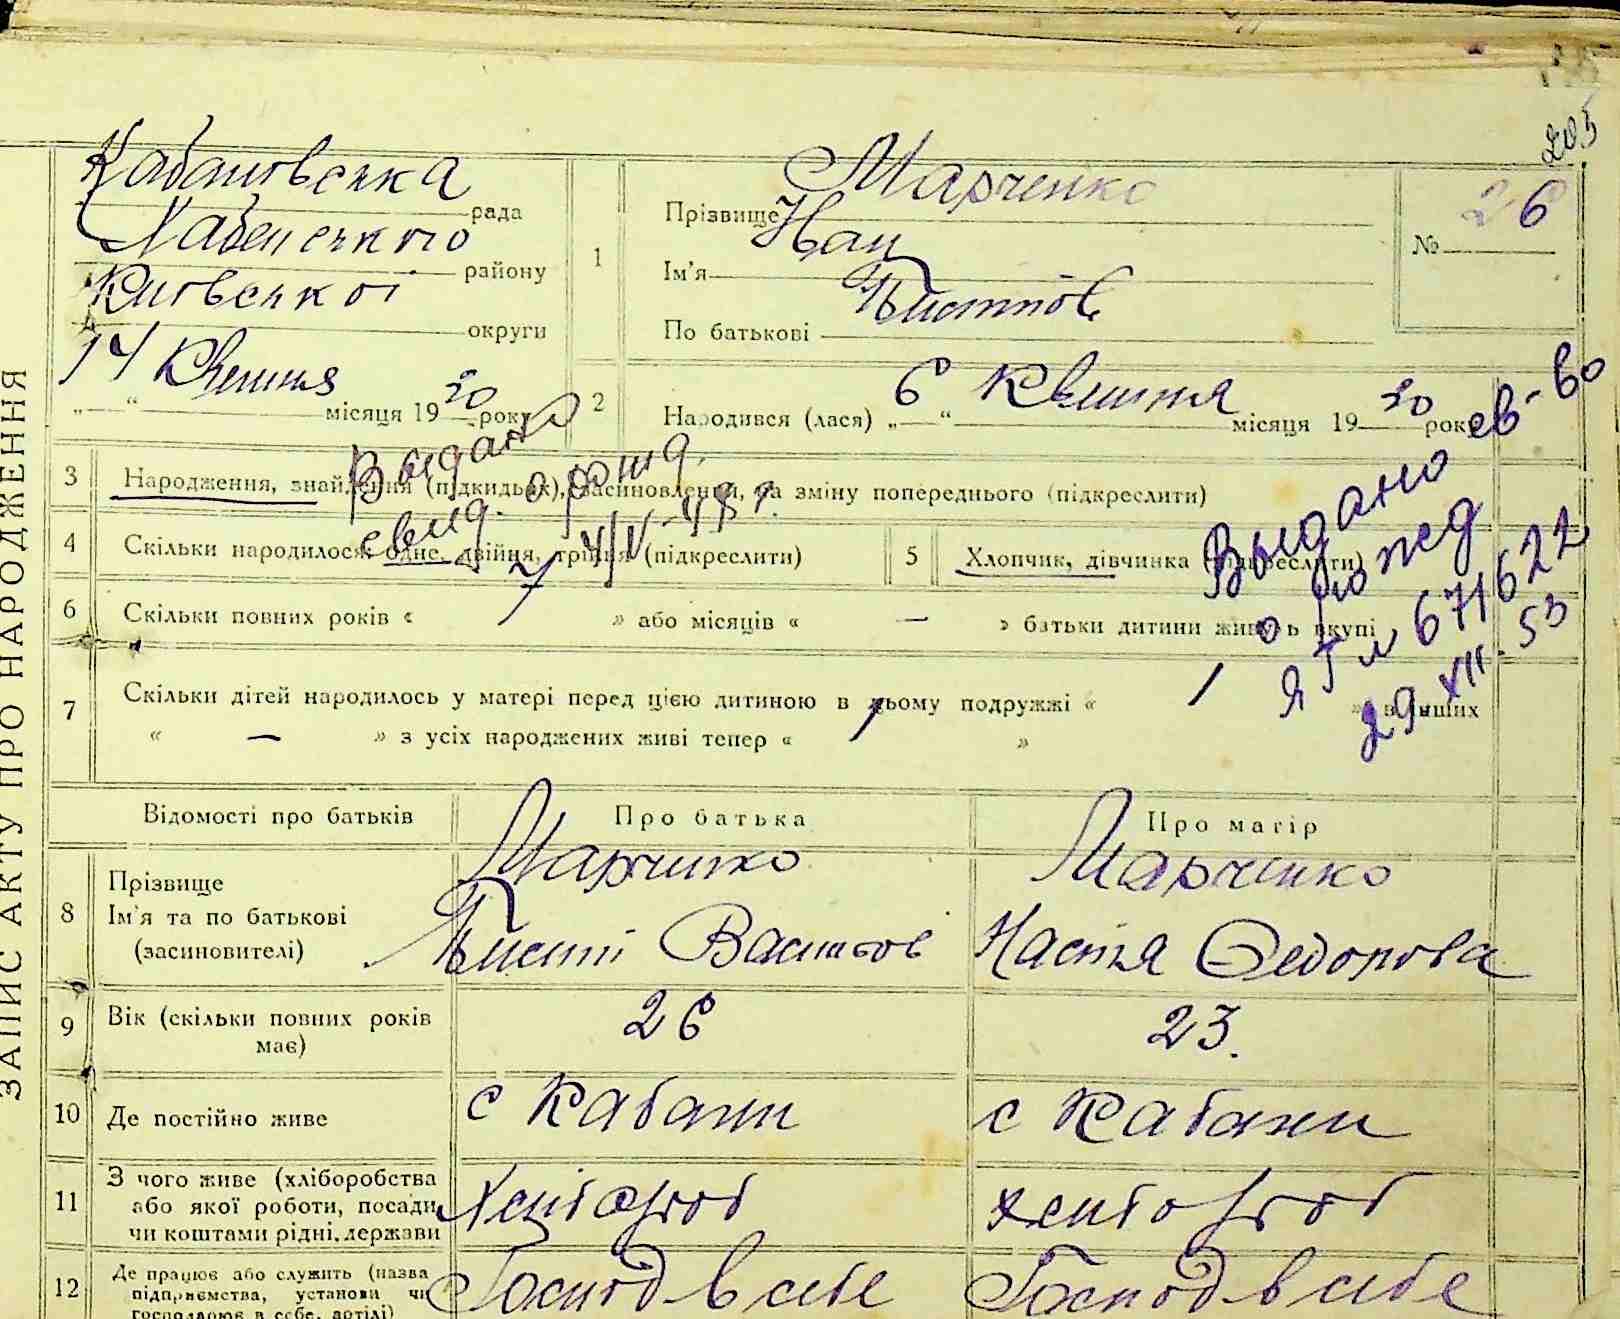 203
Кабановська рада
Хабенського району
Київської округи
14 Квітня місяця 1930 року
1
Прізвище Марченко
Ім'я Іван
По батькові
№ 26
2
Народився (лася) „6“ Квітня місяця 1930 року
Выдано
свид. о рожд.
Выдано св-во
о рожд
ЯТ № 671622
29 XII-53
3 Народження, знайдення (підкидьки), засиновлення, на зміну попереднього (підкреслити)
4 Скільки народилося: одне, двійня, трійня (підкреслити)
5 Хлопчик, дівчинка (підкреслити)
6 Скільки повних років « 7 » або місяців « — » батьки дитини живуть вкупі
7 Скільки дітей народилось у матері перед цією дитиною в цьому подружжі « 1 » в інших
« — » з усіх народжених живі тепер « 1 »
Відомості про батьків
Про батька
Про матір
8 Прізвище
Ім'я та по батькові
(засиновителі)
Марченко
Васильов
Марченко
Настя Федорова
9 Вік (скільки повних років
має)
26
23.
10 Де постійно живе
с Кабани
с Кабани
11 З чого живе (хліборобства
або якої роботи, посади
чи коштами рідні, держави
Хлібороб
хлібороб
12 Де працює або служить (назва
підприємства, установи чи
господарює в себе, артілі)
Господ в себе
Господ в себе
ЗАПИС АКТУ ПРО НАРОДЖЕННЯ